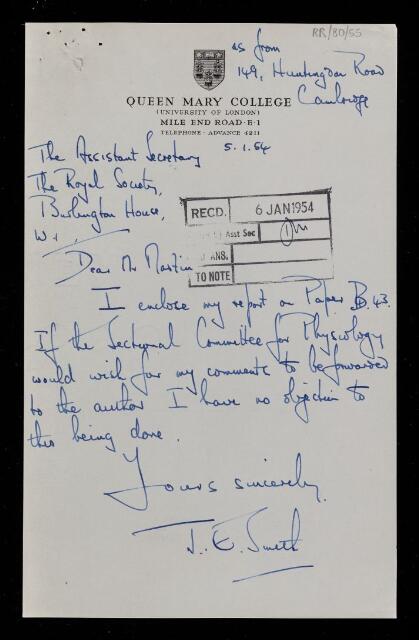 RR/80/55
as from
149, Huntingdon Road
Cambridge
QUEEN MARY COLLEGE
(UNIVERSITY OF LONDON)
MILE END ROAD · E·1
TELEPHONE · ADVANCE 4811
5.1.54
The Assistant Secretary
The Royal Society,
Burlington House,
W.1.
RECD. 6 JAN 1954
Asst Sec
ANS.
TO NOTE
Dear Mr Martin
I enclose my report on Paper B.43.
If the Sectional Committee for Physiology
would wish for my comments to be forwarded
to the author I have no objection to
this being done.
Yours sincerely,
J. E. Smith